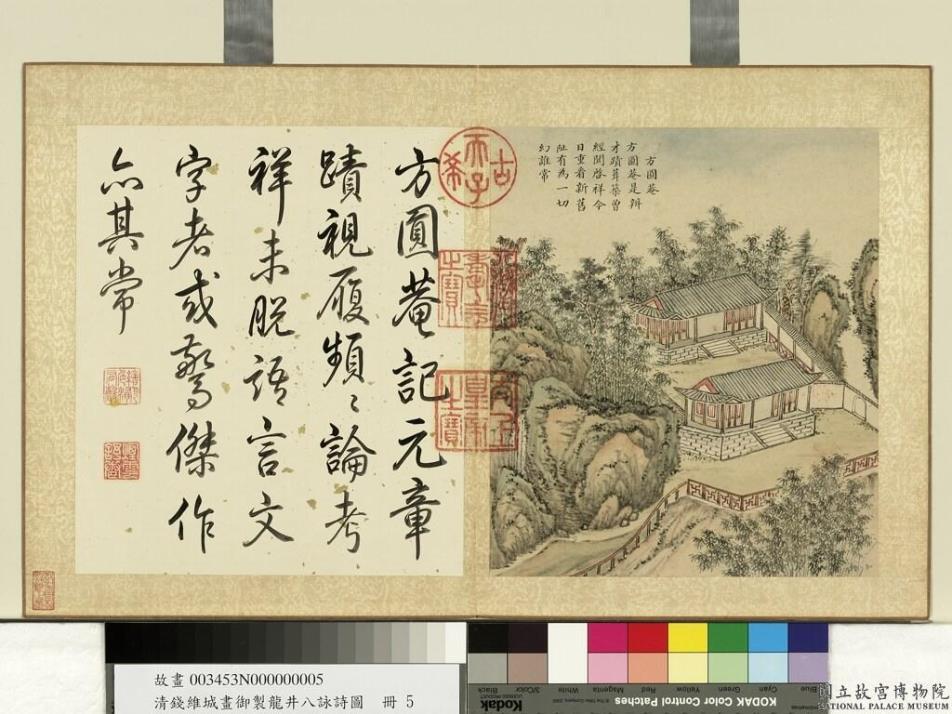 方圓菴
方圓菴是辨
才蹟葺築曾
經開啓祥今
日重看新舊
阯有為一切
幻誰常
方圓菴記元章
蹟視履頻〻論考
祥未脫語言文
字者或驚傑作
亦其常
古
天子
希
之寶
之寶
故畫 003453N000000005
清錢維城畫御製龍井八詠詩圖 冊 5
KODAK Color Control Patches
Kodak
Black
3/Color
White
Magenta
Red
Yellow
Green
Cyan
Blue
國立故宮博物院
NATIONAL PALACE MUSEUM